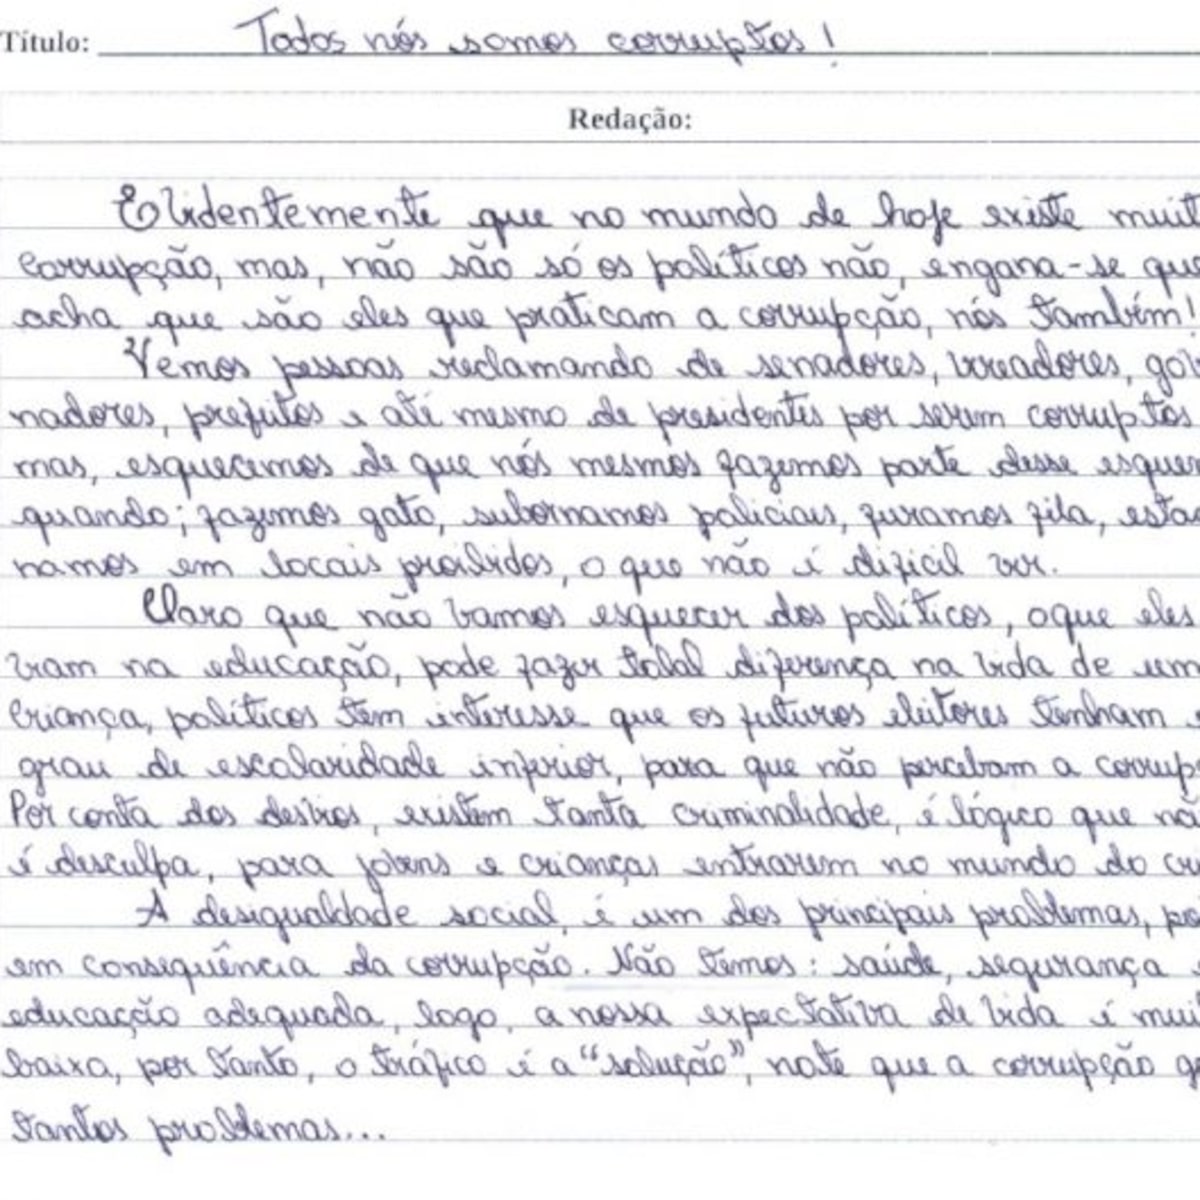 Título: Todos nós somos corruptos!
Redação:
Evidentemente que no mundo de hoje existe muit
corrupção, mas, não são só os políticos não, engana-se que
acha que são eles que praticam a corrupção, nós também!
Vemos pessoas reclamando de senadores, vereadores, gov
nadores, prefeitos e até mesmo de presidentes por serem corruptos
mas, esquecemos de que nós mesmos fazemos parte desse esque
quando; fazemos gato, subornamos policiais, furamos fila, esta
namos em locais proibidos, o que não é difícil ver.
Claro que não vamos esquecer dos políticos, oque eles
vam na educação, pode fazer total diferença na vida de um
criança, políticos tem interesse que os futuros eleitores tenham
grau de escolaridade inferior, para que não percebam a corrup
Por conta dos desvios, existem tanta criminalidade, é lógico que nã
é desculpa, para jovens e crianças entrarem no mundo do cri
A desigualdade social, é um dos principais problemas, po
em consequência da corrupção. Não temos: saúde, segurança e
educação adequada, logo, a nossa expectativa de vida é mui
baixa, por tanto, o tráfico é a "solução", note que a corrupção ge
tantos problemas...